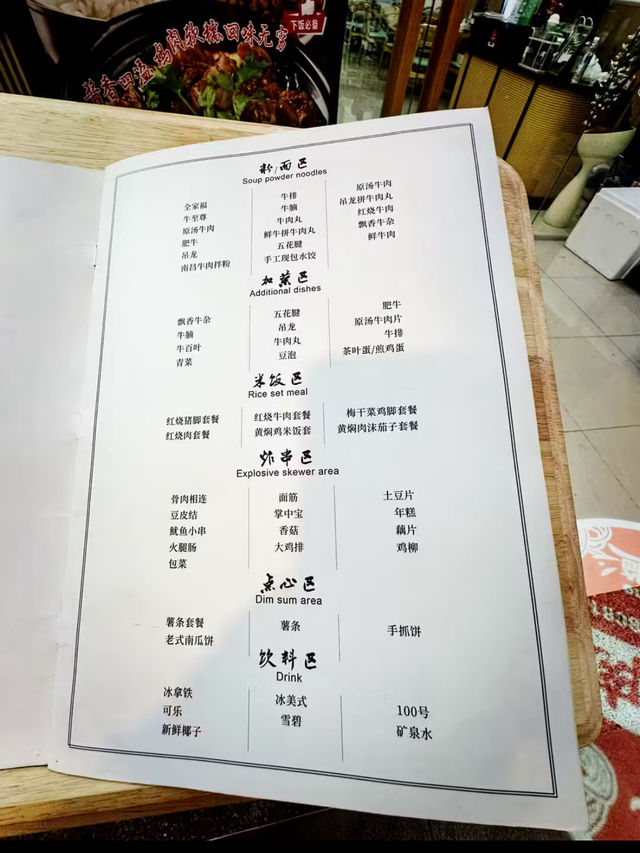 下饭必备
回味无穷
粉/面区
Soup powder noodles
全家福
牛至尊
原汤牛肉
肥牛
吊龙
南昌牛肉拌粉
牛排
牛腩
牛肉丸
鲜牛拼牛肉丸
五花腱
手工现包水饺
原汤牛肉
吊龙拼牛肉丸
红烧牛肉
飘香牛杂
鲜牛肉
加菜区
Additional dishes
飘香牛杂
牛腩
牛百叶
青菜
五花腱
吊龙
牛肉丸
豆泡
肥牛
原汤牛肉片
牛排
茶叶蛋/煎鸡蛋
米饭区
Rice set meal
红烧猪脚套餐
红烧肉套餐
红烧牛肉套餐
黄焖鸡米饭套
梅干菜鸡脚套餐
黄焖肉沫茄子套餐
炸串区
Explosive skewer area
骨肉相连
豆皮结
鱿鱼小串
火腿肠
包菜
面筋
掌中宝
香菇
大鸡排
土豆片
年糕
藕片
鸡柳
点心区
Dim sum area
薯条套餐
老式南瓜饼
薯条
手抓饼
饮料区
Drink
冰拿铁
可乐
新鲜椰子
冰美式
雪碧
100号
矿泉水